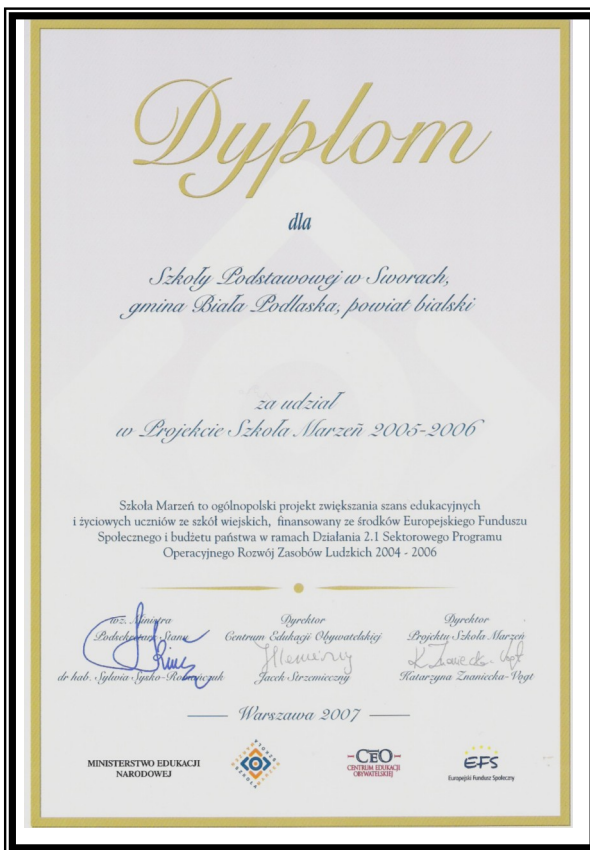 Dyplom
dla
Szkoły Podstawowej w Sworach,
gmina Biała Podlaska, powiat bialski
za udział
w Projekcie Szkoła Marzeń 2005-2006
Szkoła Marzeń to ogólnopolski projekt zwiększania szans edukacyjnych
i życiowych uczniów ze szkół wiejskich, finansowany ze środków Europejskiego Funduszu
Społecznego i budżetu państwa w ramach Działania 2.1 Sektorowego Programu
Operacyjnego Rozwój Zasobów Ludzkich 2004 - 2006
wz. Ministra
Podsekretarz Stanu
dr hab. Sylwia Sysko-Romańczuk
Dyrektor
Centrum Edukacji Obywatelskiej
Jacek Strzemieczny
Dyrektor
Projektu Szkoła Marzeń
Katarzyna Znaniecka-Vogt
Warszawa 2007
MINISTERSTWO EDUKACJI
NARODOWEJ
CEO
CENTRUM EDUKACJI
OBYWATELSKIEJ
EFS
Europejski Fundusz Społeczny